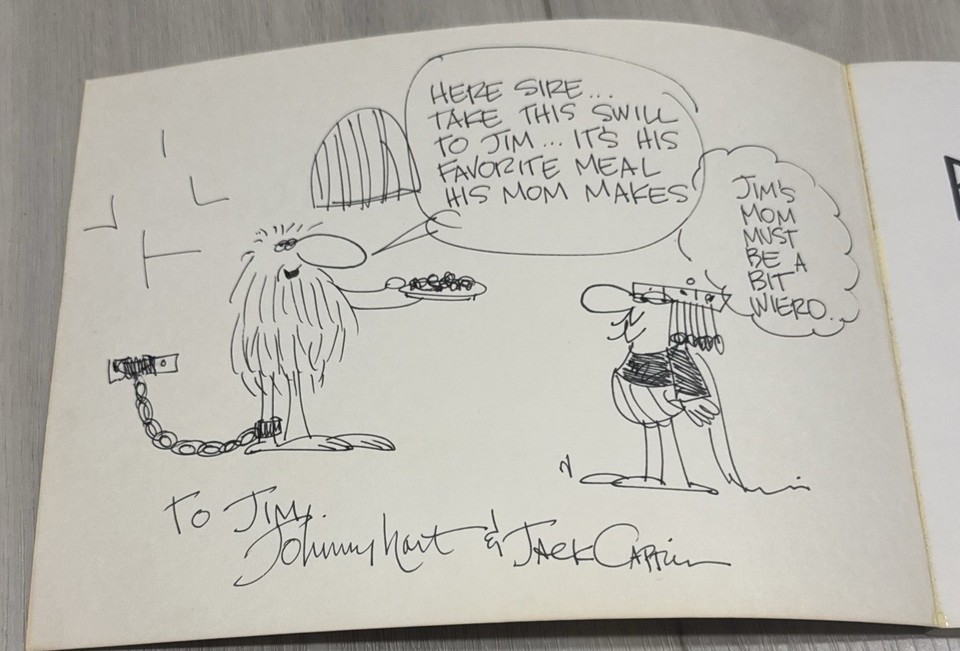 HERE SIRE...
TAKE THIS SWILL
TO JIM... IT'S HIS
FAVORITE MEAL
HIS MOM MAKES
JIM'S
MOM
MUST
BE A
BIT
WIERD..
TO JIM,
Johnny Hart & Jack Caprio